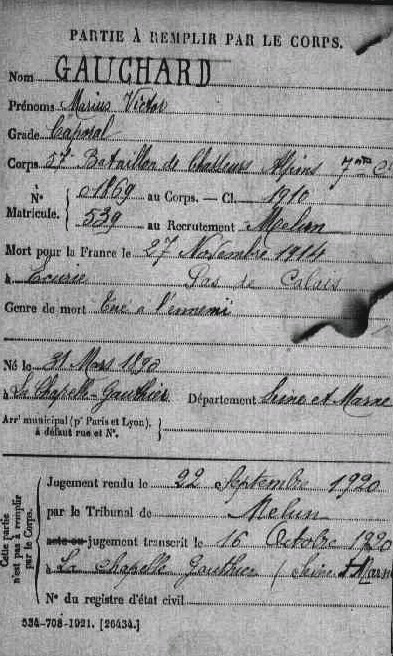 PARTIE À REMPLIR PAR LE CORPS.
Nom GAUCHARD
Prénoms Marius Victor
Grade Caporal
Corps 57e Bataillon de Chasseurs Alpins 7me Cie
N° Matricule. { 01869 au Corps. — Cl. 1910
539 au Recrutement Melun
Mort pour la France le 27 Novembre 1914
à Ecurie Pas de Calais
Genre de mort Tué à l'ennemi
Né le 31 Mars 1890
à La Chapelle-Gauthier Département Seine et Marne
Arrt municipal (pr Paris et Lyon), à défaut rue et N°. }
Cette partie n'est pas à remplir par le Corps.
Jugement rendu le 22 Septembre 1920
par le Tribunal de Melun
acte ou jugement transcrit le 16 Octobre 1920
à La Chapelle Gauthier (Seine et Marne
N° du registre d'état civil
534-708-1921. [26434.]